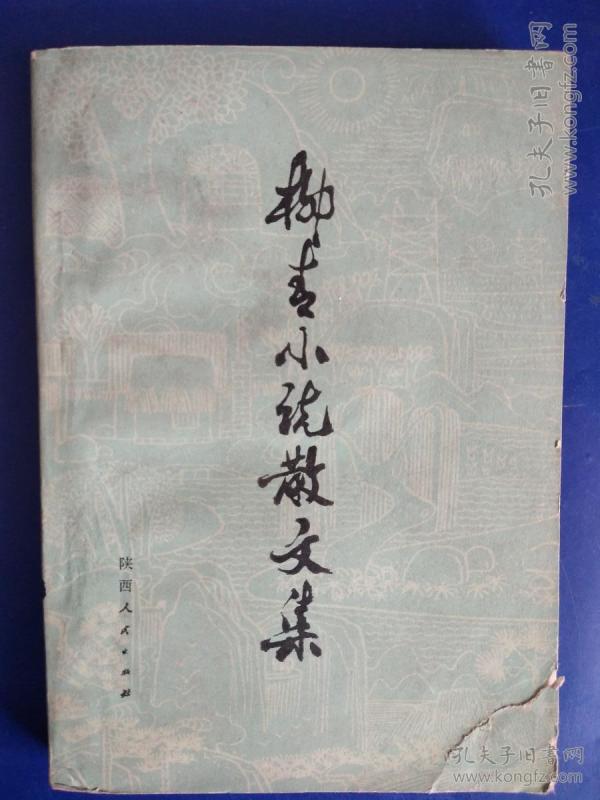 柳青小说散文集
陕西人民出版社
孔夫子旧书网
www.kongfz.com
孔夫子旧书网
www.kongfz.com